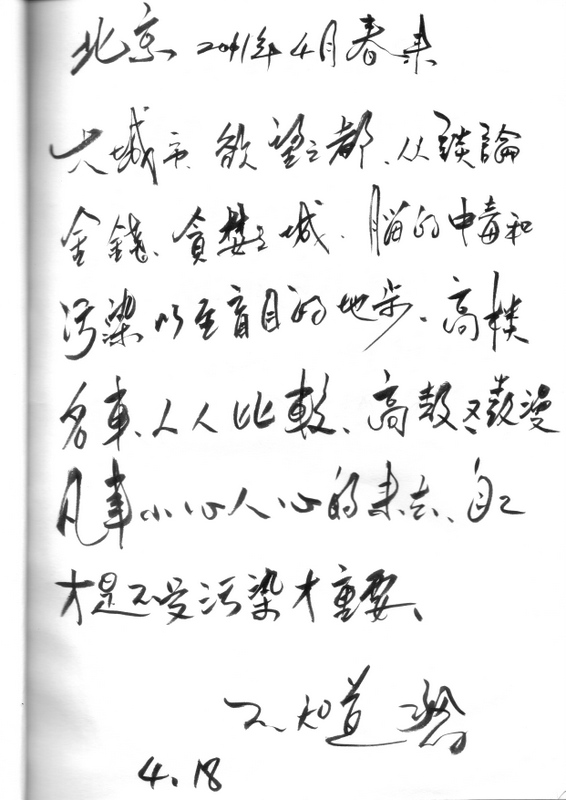 北京 2011年4月春来
大城市、欲望之都、从談論
金錢、貪婪之城、腦的中毒和
污染以至盲目的地步、高樓
名車、人人比較、高
凡事小心人心的未去、自己
才是不受污染才重要、
不知道
4.18